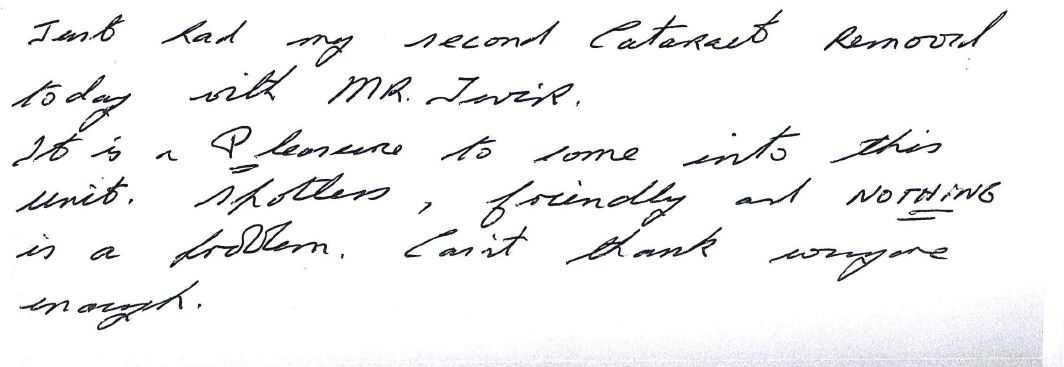 Just had my second Cataract Removed
today with MR.
It is a Pleasure to come into this
unit. Spotless, friendly and NOTHING
is a problem. Can't thank everyone
enough.